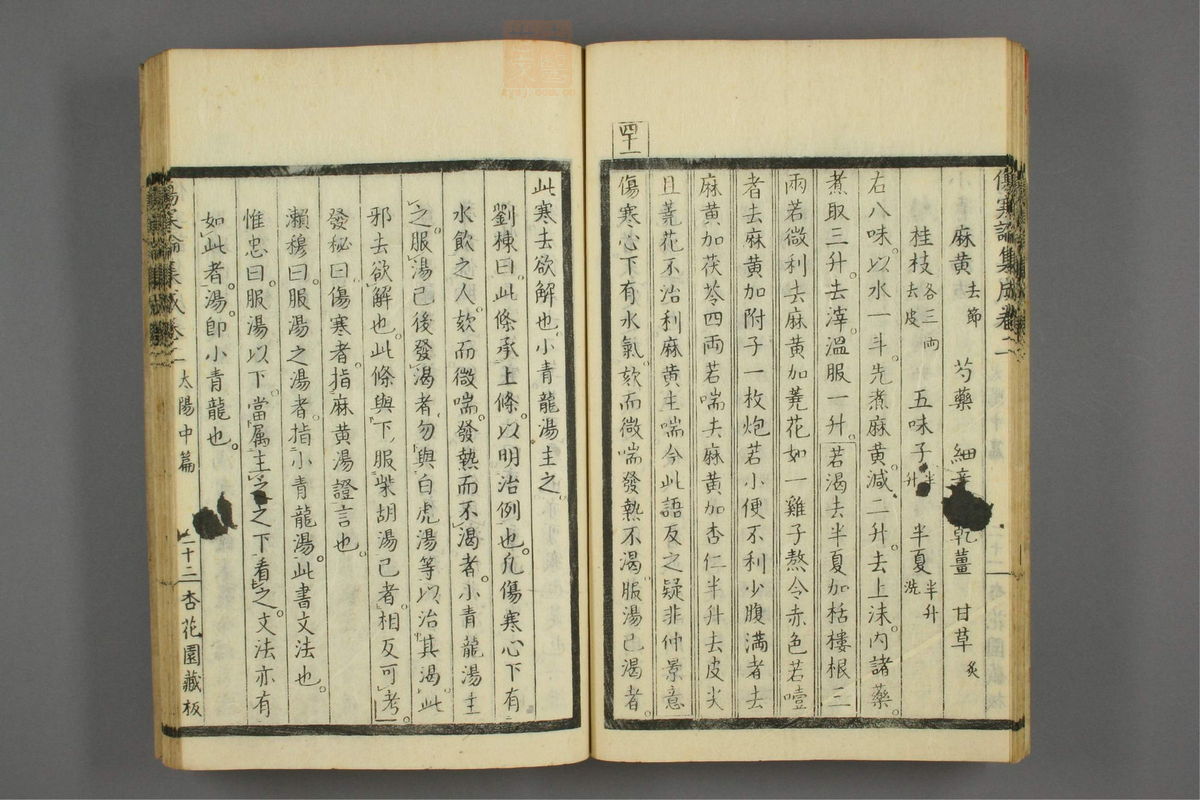 傷寒論集成卷二
麻黄去節 芍藥 細辛 乾薑 甘草炙
桂枝各三両去皮 五味子半升 半夏半升洗
右八味以水一斗先煮麻黄減二升去上沫内諸藥
煮取三升去滓溫服一升若渇去半夏加栝樓根三
兩若微利去麻黄加蕘花如一雞子熬令赤色若噎
者去麻黄加附子一枚炮若小便不利少腹満者去
麻黄加茯苓四両若喘去麻黄加杏仁半升去皮尖
且蕘花不治利麻黄主喘今此語反之疑非仲景意
傷寒心下有水氣欬而微喘發熱不渇服湯已渇者
四十一
此寒去欲解也小青龍湯主之
劉棟曰此條承上條以明治例也凡傷寒心下有
水飲之人欬而微喘發熱而不渇者小青龍湯主
之服湯已後發渇者勿與白虎湯等以治其渇此
邪去欲解也此條與下服柴胡湯已者相反可考
發秘曰傷寒者指麻黄湯證言也
瀨穆曰服湯之湯者指小青龍湯此書文法也
惟忠曰服湯以下當属主之之下看之文法亦有
如此者湯即小青龍也
傷寒論集成卷二 太陽中篇 二十三 杏花園藏板